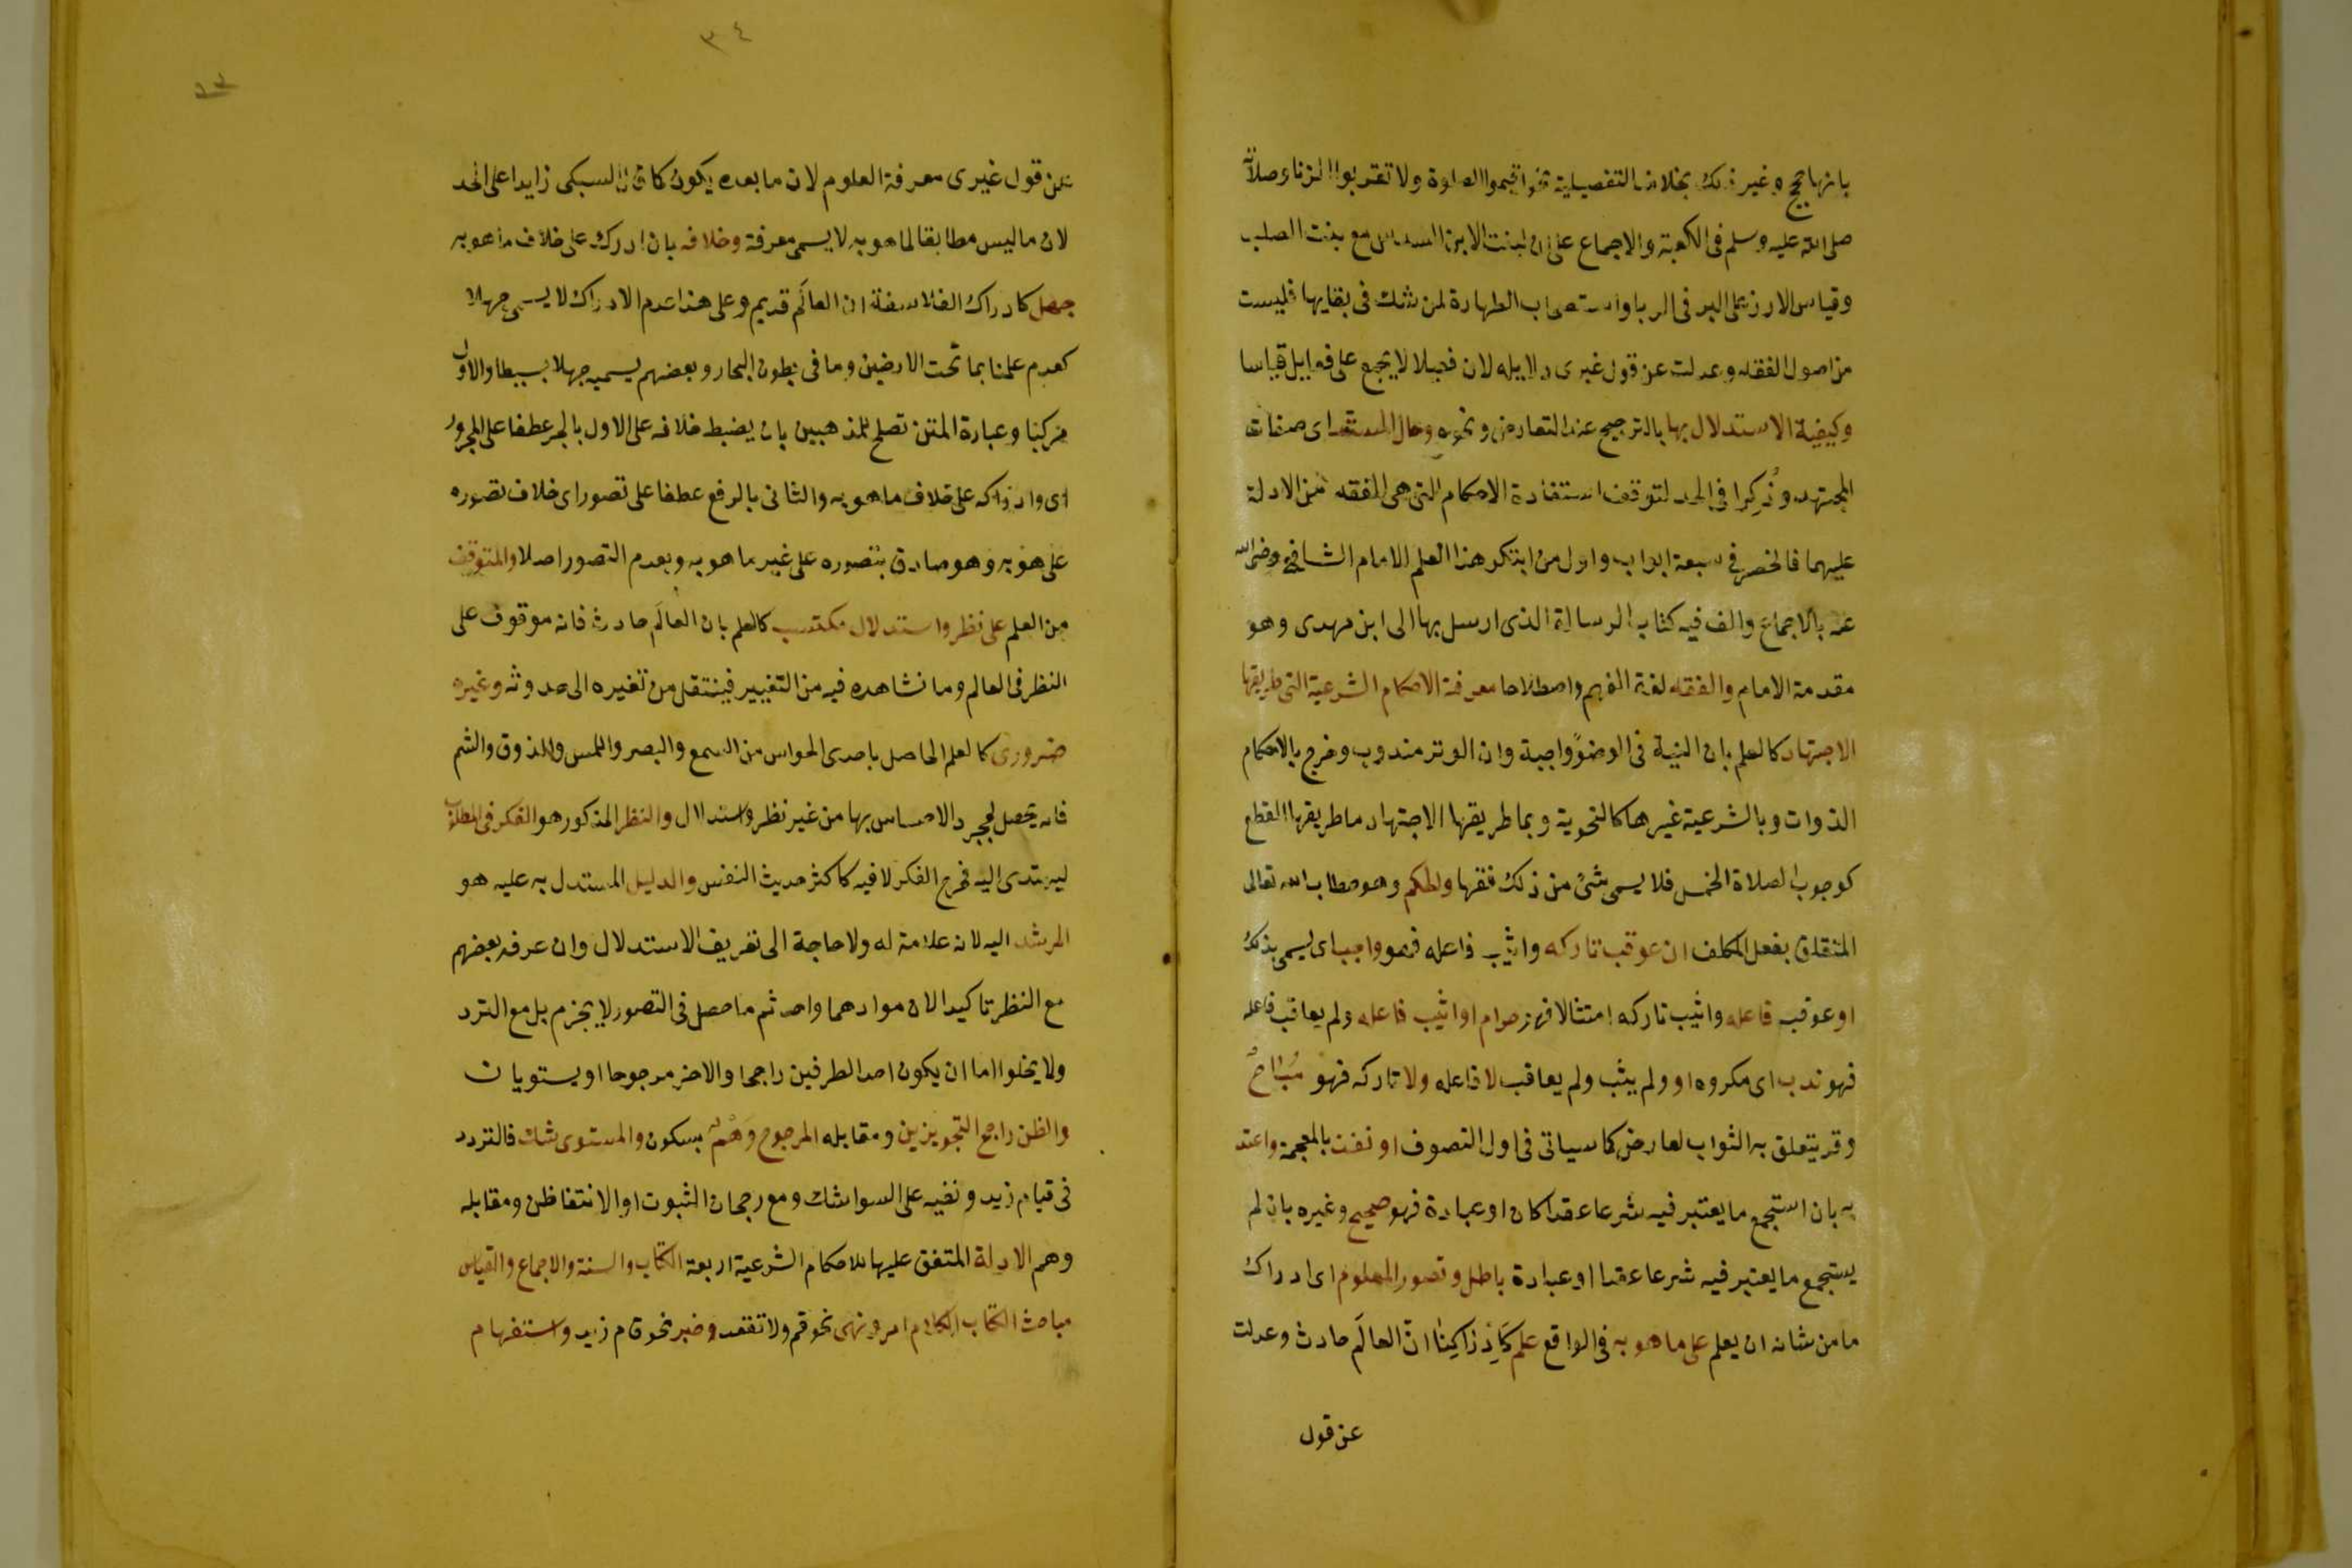 بانها حجج وغير ذلك بخلاف التفصيلية نحو اقيموا الصلوة ولا تقربوا الزنا وصلاته
صلى الله عليه وسلم فى الكعبة والاجماع على ان لبنت الابن السدس مع بنت الصلب
وقياس الارز على البر فى الربا واستصحاب الطهارة لمن شك فى بقايها فليست
من اصول الفقه وعدلت عن قول غيرى دلايله لان فعيلا لا يجمع على فعايل قياسا
وكيفية الاستدلال بها بالترجيح عند التعارض ونحوه وحال المستدل اى صفات
المجتهد وذُكِرا فى الحد لتوقف استفادة الاحكام التى هى الفقه من الادلة
عليهما فانحصر فى سبعة ابواب واول من ابتكر هذا العلم الامام الشافعى رضى الله
عنه بالاجماع والف فيه كتاب الرسالة الذى ارسل بها الى ابن مهدى وهو
مقدمة الامام والفقه لغة الفهم واصطلاحا معرفة الاحكام الشرعية التى طريقها
الاجتهاد كالعلم بان النية فى الوضوء واجبة وان الوتر مندوب وخرج بالاحكام
الذوات وبالشرعية غيرها كالنحوية وبما طريقها الاجتهاد ما طريقها القطع
كوجوب الصلاة الخمس فلا يسمى شئ من ذلك فقها والحكم وهو خطاب الله تعالى
المتعلق بفعل المكلف ان عوقب تاركه واثيب فاعله فهو واجب اى يسمى بذلك
او عوقب فاعله واثيب تاركه امتثالا فهو حرام او اثيب فاعله ولم يعاقب فاعله
فهو ندب اى مكروه او ولم يثب ولم يعاقب لا فاعله ولا تاركه فهو مُبَاحٌ
وقد يتعلق به الثواب لعارض كما سياتى فى اول التصوف او نفذ بالمعجمة واعتد
به بان استجمع ما يعتبر فيه شرعا عقدا كان او عبادة فهو صحيح وغيره بان لم
يستجمع ما يعتبر فيه شرعا عقدا او عبادة باطل وتصور المعلوم اى ادراك
ما من شانه ان يعلم على ما هو به فى الواقع علم كَاِدْرَاكِنَا انّ العالَم حادث وعدلت
عن قول
٣٤
عن قول غيرى معرفة العلوم لان ما بعده يكون كما قال السبكى زايدا على الحد
لان ما ليس مطابقا لما هو به لا يسمى معرفة وخلافه بان ادرك على خلاف ما هو به
جهل كادراك الفلاسفة ان العالَم قديم وعلى هذا عدم الادراك لا يسمى جهلا
كعدم علمنا بما تحت الارضين وما فى بطون البحار وبعضهم يسميه جهلا بسيطا والاول
مركبا وعبارة المتن تصلح للمذهبين بان يضبط خلافه على الاول بالجر عطفا على المجرور
اى وادراكه على خلاف ما هو به والثانى بالرفع عطفا على تصور اى خلاف تصوره
على هو به وهو صادق بتصوره على غير ما هو به وبعدم التصور اصلا والمتوقف
من العلم على نظر واستدلال مكتسب كالعلم بان العالَم حادث فانه موقوف على
النظر فى العالم وما نشاهده فيه من التغيير فينتقل من تغيره الى حدوثه وغيره
ضرورى كالعلم الحاصل باحدى الحواس من السمع والبصر واللمس والذوق والشم
فانه يحصل بمجرد الاحساس بها من غير نظر واستدلال والنظر المذكور هو الفكر فى المطلوب
ليهتدى اليه فخرج الفكر لا فيه كاكثر حديث النفس والدليل المستدل به عليه هو
المرشد اليه لانه علامة له ولا حاجة الى تعريف الاستدلال وان عرفه بعضهم
مع النظر تاكيدا لان موادهما واحد ثم ما حصل فى التصور لا بجزم بل مع التردد
ولا يخلوا اما ان يكون احد الطرفين راجحا والاخر مرجوحا او يستويان
والظن راجح التجويزين ومقابله المرجوح وَهْمٌ بسكون والمستوى شك فالتردد
فى قيام زيد ونفيه على السوا شك ومع رجحان الثبوت او الانتفا ظن ومقابله
وهم الادلة المتفق عليها للاحكام الشرعية اربعة الكتاب والسنة والاجماع والقياس
مباحث الكتاب الكلام امر ونهى نحو قم ولا تقعد وخبر نحو قام زيد واستفهام